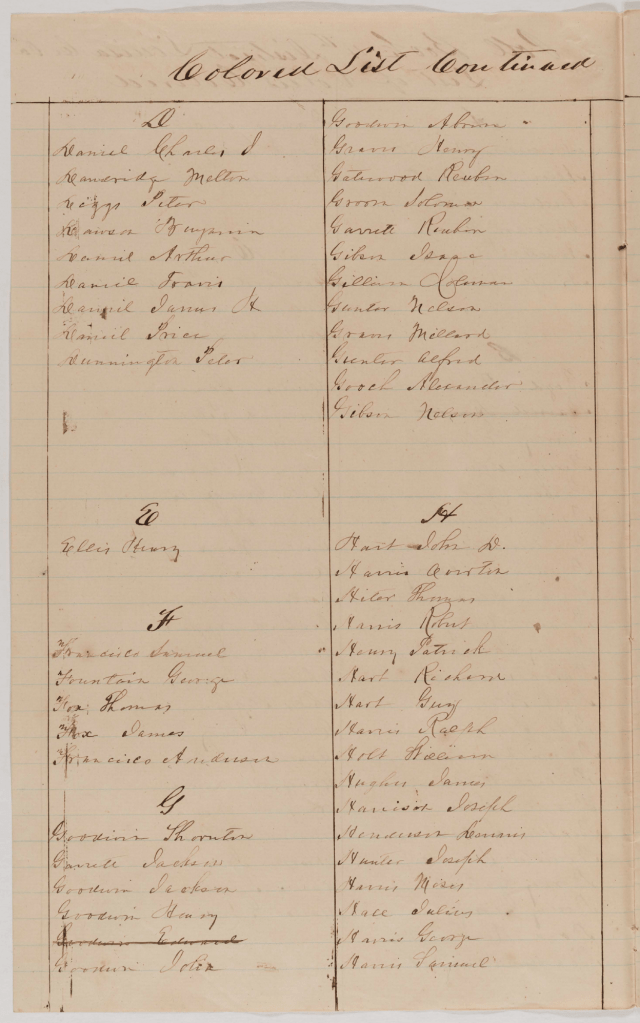 Colored List Continued
D
Daniel Charles J
Dandridg Melton
Diggs Peter
Dawson Benjamin
Daniel Arthur
Daniel Travis
Daniel James H
Daniel Price
Dunnington Peter
E
Ellis Henry
F
Francisco Samuel
Fountain George
Fox Thomas
Fox James
Francisco Anderson
G
Goodwin Thornton
Garrett Jackson
Goodwin Jackson
Goodwin Henry
Goodwin Edward
Goodwin John
Goodwin Abram
Graves Henry
Gatewood Reuben
Groom Solomon
Garrett Reubin
Gibson Isaac
Gilliam Coleman
Gunter Nelson
Graves Millard
Gunter Alfred
Gooch Alexander
Gibson Nelson
H
Hart John D.
Harris
Hiler Thomas
Harris Robert
Henry Patrick
Hart Richard
Hart Guy
Harris Ralph
Holt William
Hughes James
Harrison Joseph
Henderson Dennis
Hunter Joseph
Harris Moses
Hall Julius
Harris George
Harris Samuel